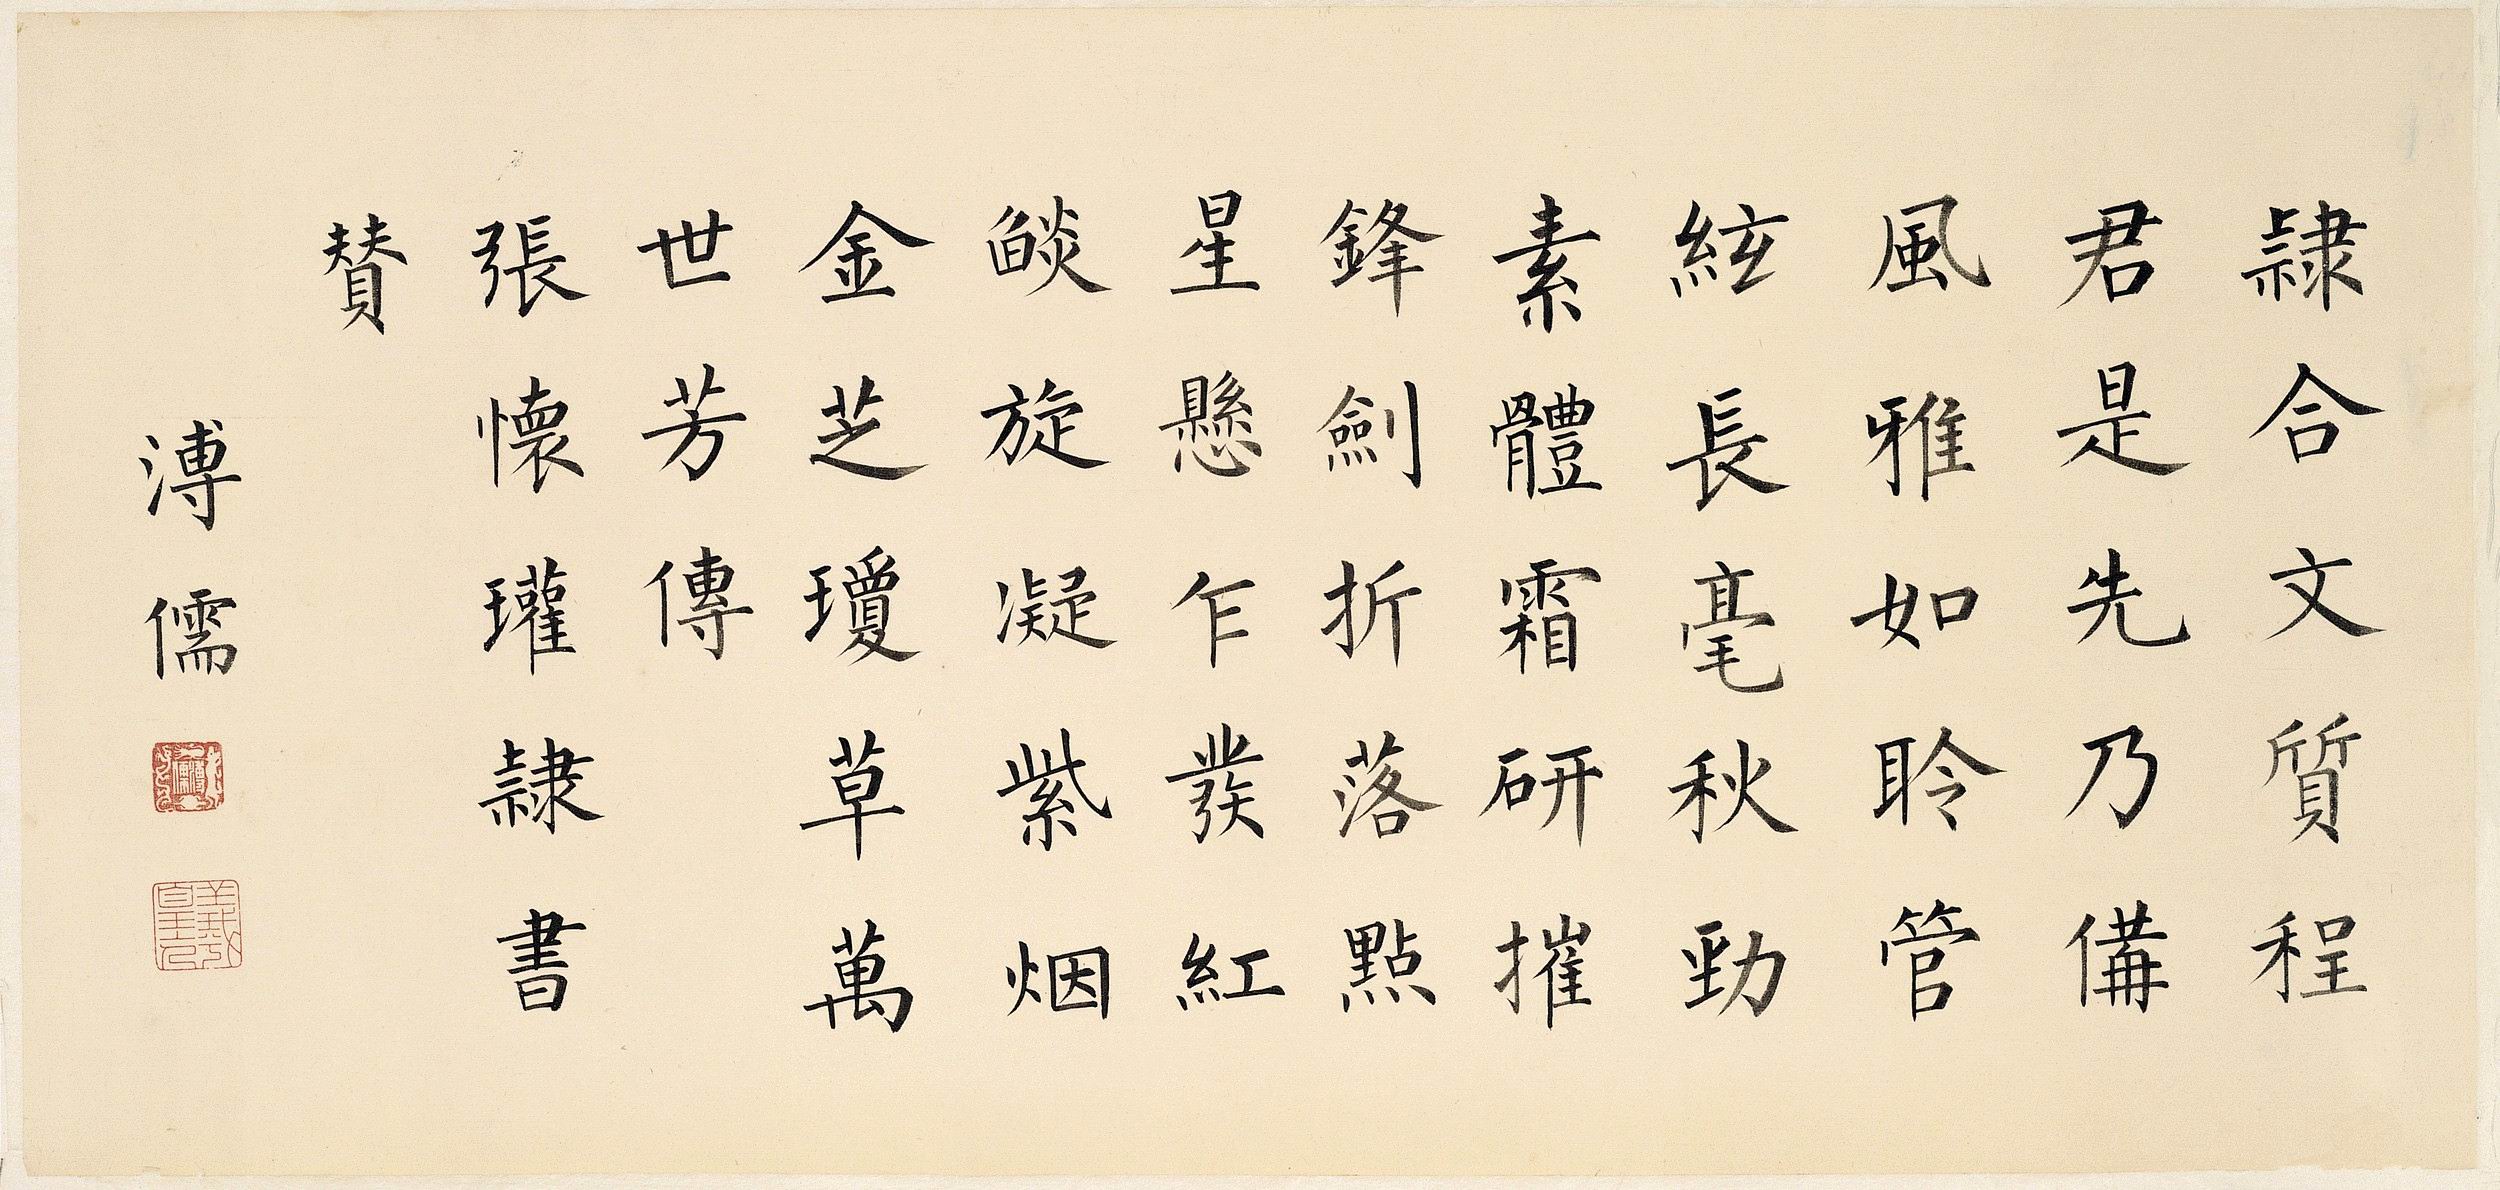 隷合文質程
君是先乃備
風雅如聆管
絃長毫秋勁
素體霜研摧
鋒劍折落點
星懸乍發紅
燄旋凝紫烟
金芝瓊草萬
世芳傳
張懷瓘隷書
贊
溥儒
溥儒